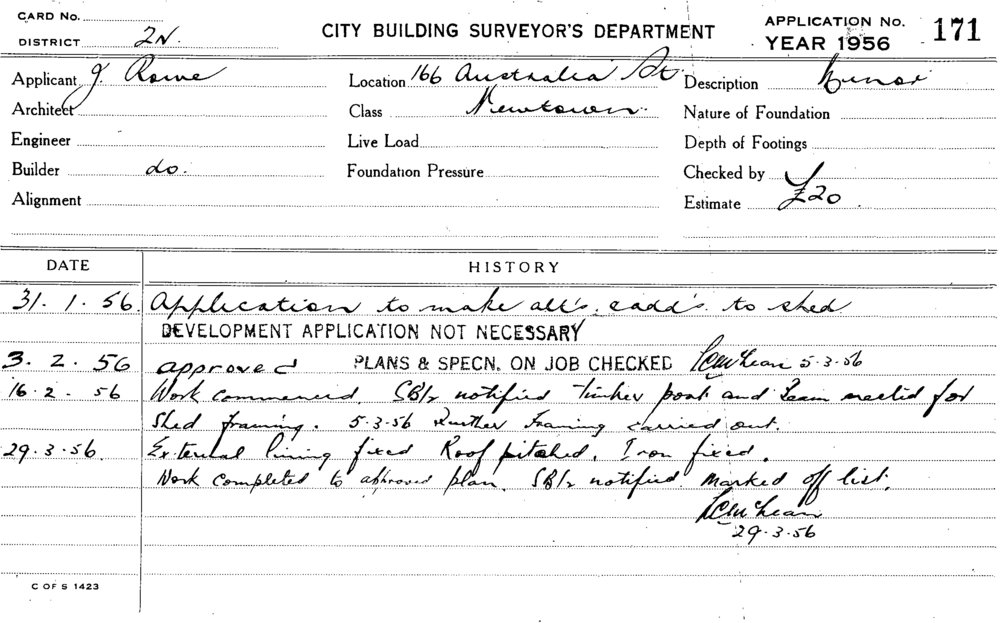 CARD No.
DISTRICT 2N.
CITY BUILDING SURVEYOR'S DEPARTMENT
APPLICATION No. 171
YEAR 1956
Applicant J. Rowe
Location 166 Australia St.
Description Minor
Architect
Class Newtown.
Nature of Foundation
Engineer
Live Load
Depth of Footings
Builder do.
Foundation Pressure
Checked by
Alignment
Estimate £20
DATE HISTORY
31.1.56 Application to make alt's. & add's. to shed
DEVELOPMENT APPLICATION NOT NECESSARY
3.2.56 approved PLANS & SPECN. ON JOB CHECKED 5-3-56
16-2-56 Work commenced. notified timber post and beam erected for
Shed framing. 5-3-56 Further framing carried out.
29-3-56. External lining fixed Roof pitched. Iron fixed.
Work completed to approved plan. notified marked off list.
29-3-56
C OF S 1423